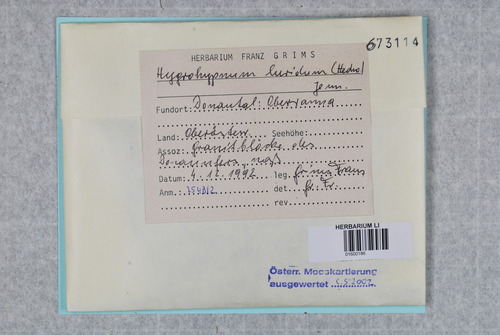 673114
HERBARIUM FRANZ GRIMS
Hygrohypnum luridum (Hedw.)
Jenn.
Fundort: Donautal: Oberranna
Land: Oberösterr. Seehöhe:
Assoz: Granitblöcke des
Donauufers, naß
Datum: 4.12.1992 leg. Grims Franz
Anm. det. Gr. Fr.
rev.
HERBARIUM LI
01600186
Österr. Mooskartierung
ausgewertet